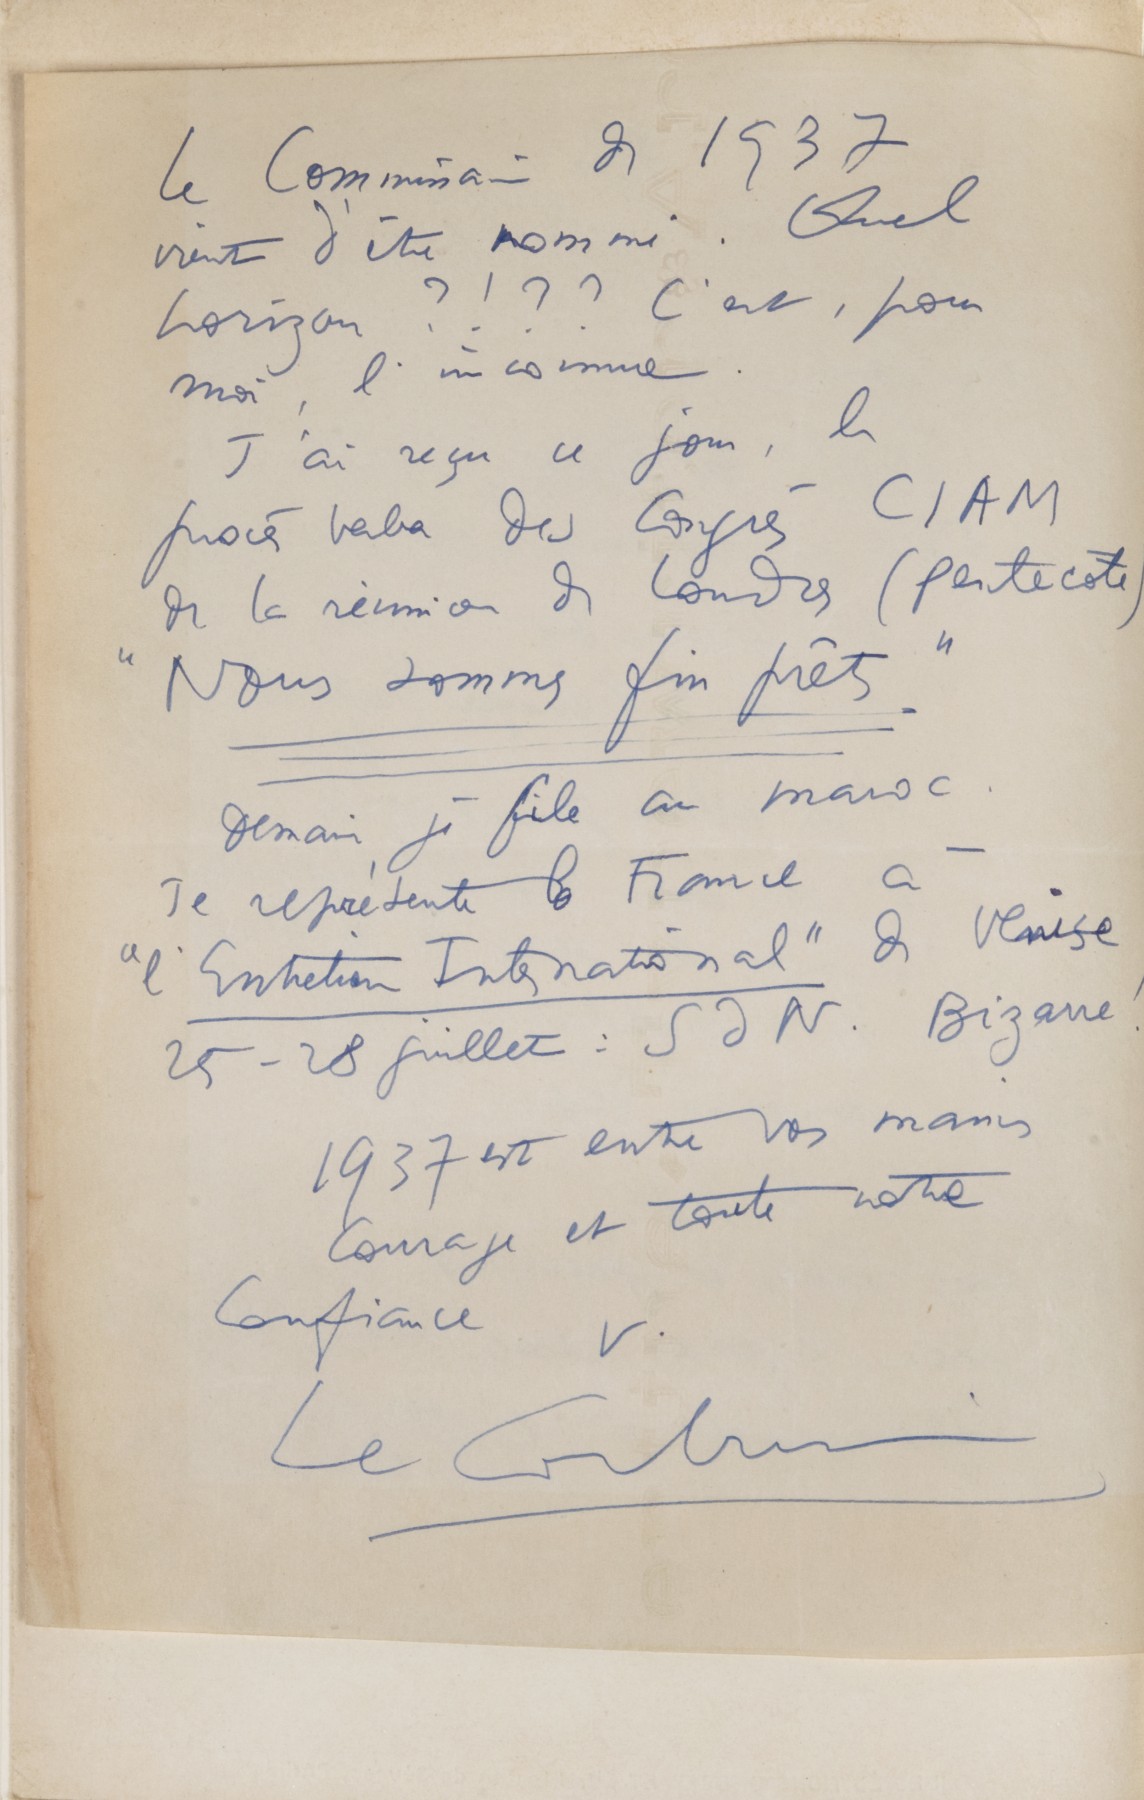 Le Commissaire de 1937
vient d'être nommé. Quel
horizon ?!?? C'est, pour
moi, l'inconnue.
J'ai reçu ce jour, le
procès verbal des Congrès CIAM
de la réunion de Londres (Pentecôte)
"Nous sommes fin prêts"
Demain je file au maroc.
Je représente la France à
"l'Entretien International" de Venise
25-28 juillet : SdN. Bizarre!
1937 est entre vos mains
Courage et toute notre
Confiance v.
Le Corbusier